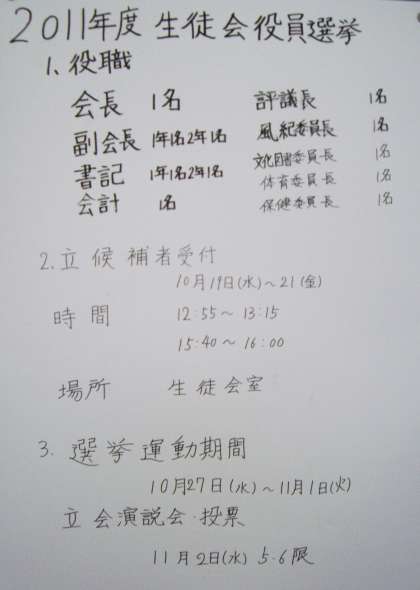 2011年度 生徒会役員選挙
1、役職
会長 1名 評議長 1名
副会長 1年1名2年1名 風紀委員長 1名
書記 1年1名2年1名 文化図書委員長 1名
体育委員長 1名
会計 1名 保健委員長 1名
2.立候補者受付
10月19日(水)～21(金)
時間 12:55～13:15
15:40～16:00
場所 生徒会室
3.選挙運動期間
10月27日(水)～11月1日(火)
立会演説会・投票
11月2日(水) 5.6限